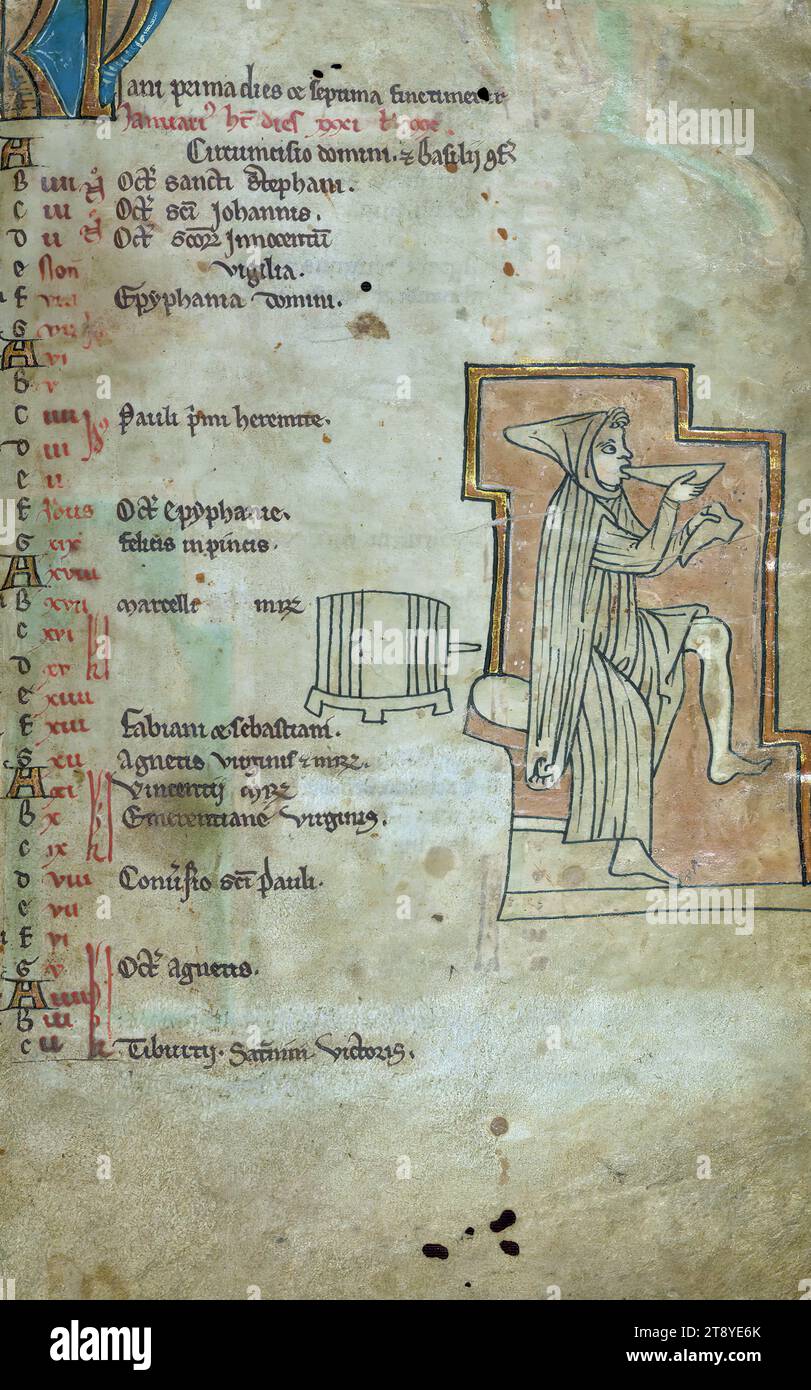 KL
Iani prima dies & septima fine timetur
Januari⁹ ht dies xxxi l
A Circumcisio domini. & Basilii 9f
B iiii Oct sancti Stephani.
C iii Oct sci Johannis.
D ii Oct scorꝝ Innocentū
e Non vigilia.
F viii Epyphania domini.
G vii
A vi
B v
C iiii Pauli pimi heremite.
D iii
e ii
F Idus Oct Epyphanie.
G xix felicis in pincis.
A xviii
B xvii Marcelli mrꝝ
C xvi
D xv
e xiiii
F xiii Fabiani & Sebastiani.
G xii Agnetis virginis & mrꝝ.
A xi Vincentii mrꝝ
B x Emerentiane virginis.
C ix
D viii Conusio sci Pauli.
e vii
F vi
G v Oct Agnetis.
A iiii
B iii
C ii Tiburtii. Saturnini Victoris.
alamy
Image ID: 2T8YE6K
www.alamy.com